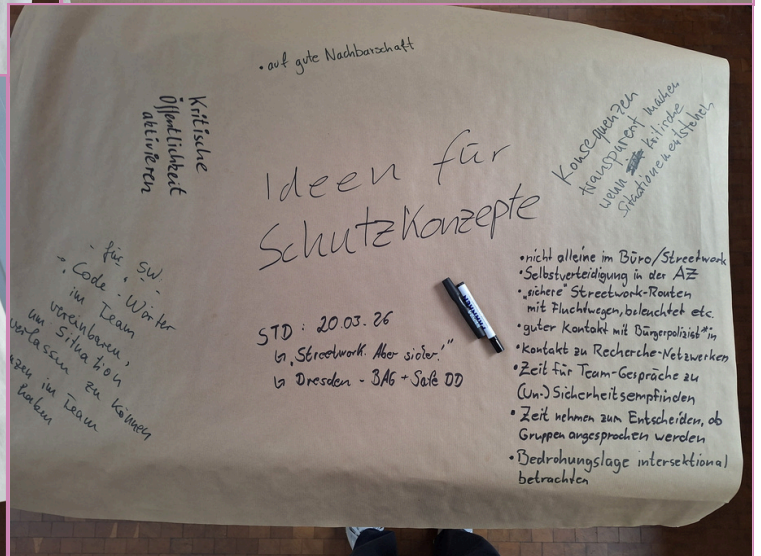 • auf gute Nachbarschaft
Kritische
Öffentlichkeit
aktivieren
Konsequenzen
transparent machen
wenn kritische
Situationen entstehen
Ideen für
Schutzkonzepte
- für SW -
"Code"-Wörter
im Team
vereinbaren,
um Situation
verlassen zu können
im Team
haben
STD: 20.03.26
↳ „Streetwork. Aber sicher."
↳ Dresden - BAG + Safe DD
• nicht alleine im Büro/Streetwork
• Selbstverteidigung in der AZ
• „sichere" Streetwork-Routen
mit Fluchtwegen, beleuchtet etc.
• guter Kontakt mit Bürgerpolizist*in
• Kontakt zu Recherche-Netzwerken
• Zeit für Team-Gespräche zu
(Un-) Sicherheitsempfinden
• Zeit nehmen zum Entscheiden, ob
Gruppen angesprochen werden
• Bedrohungslage intersektional
betrachten